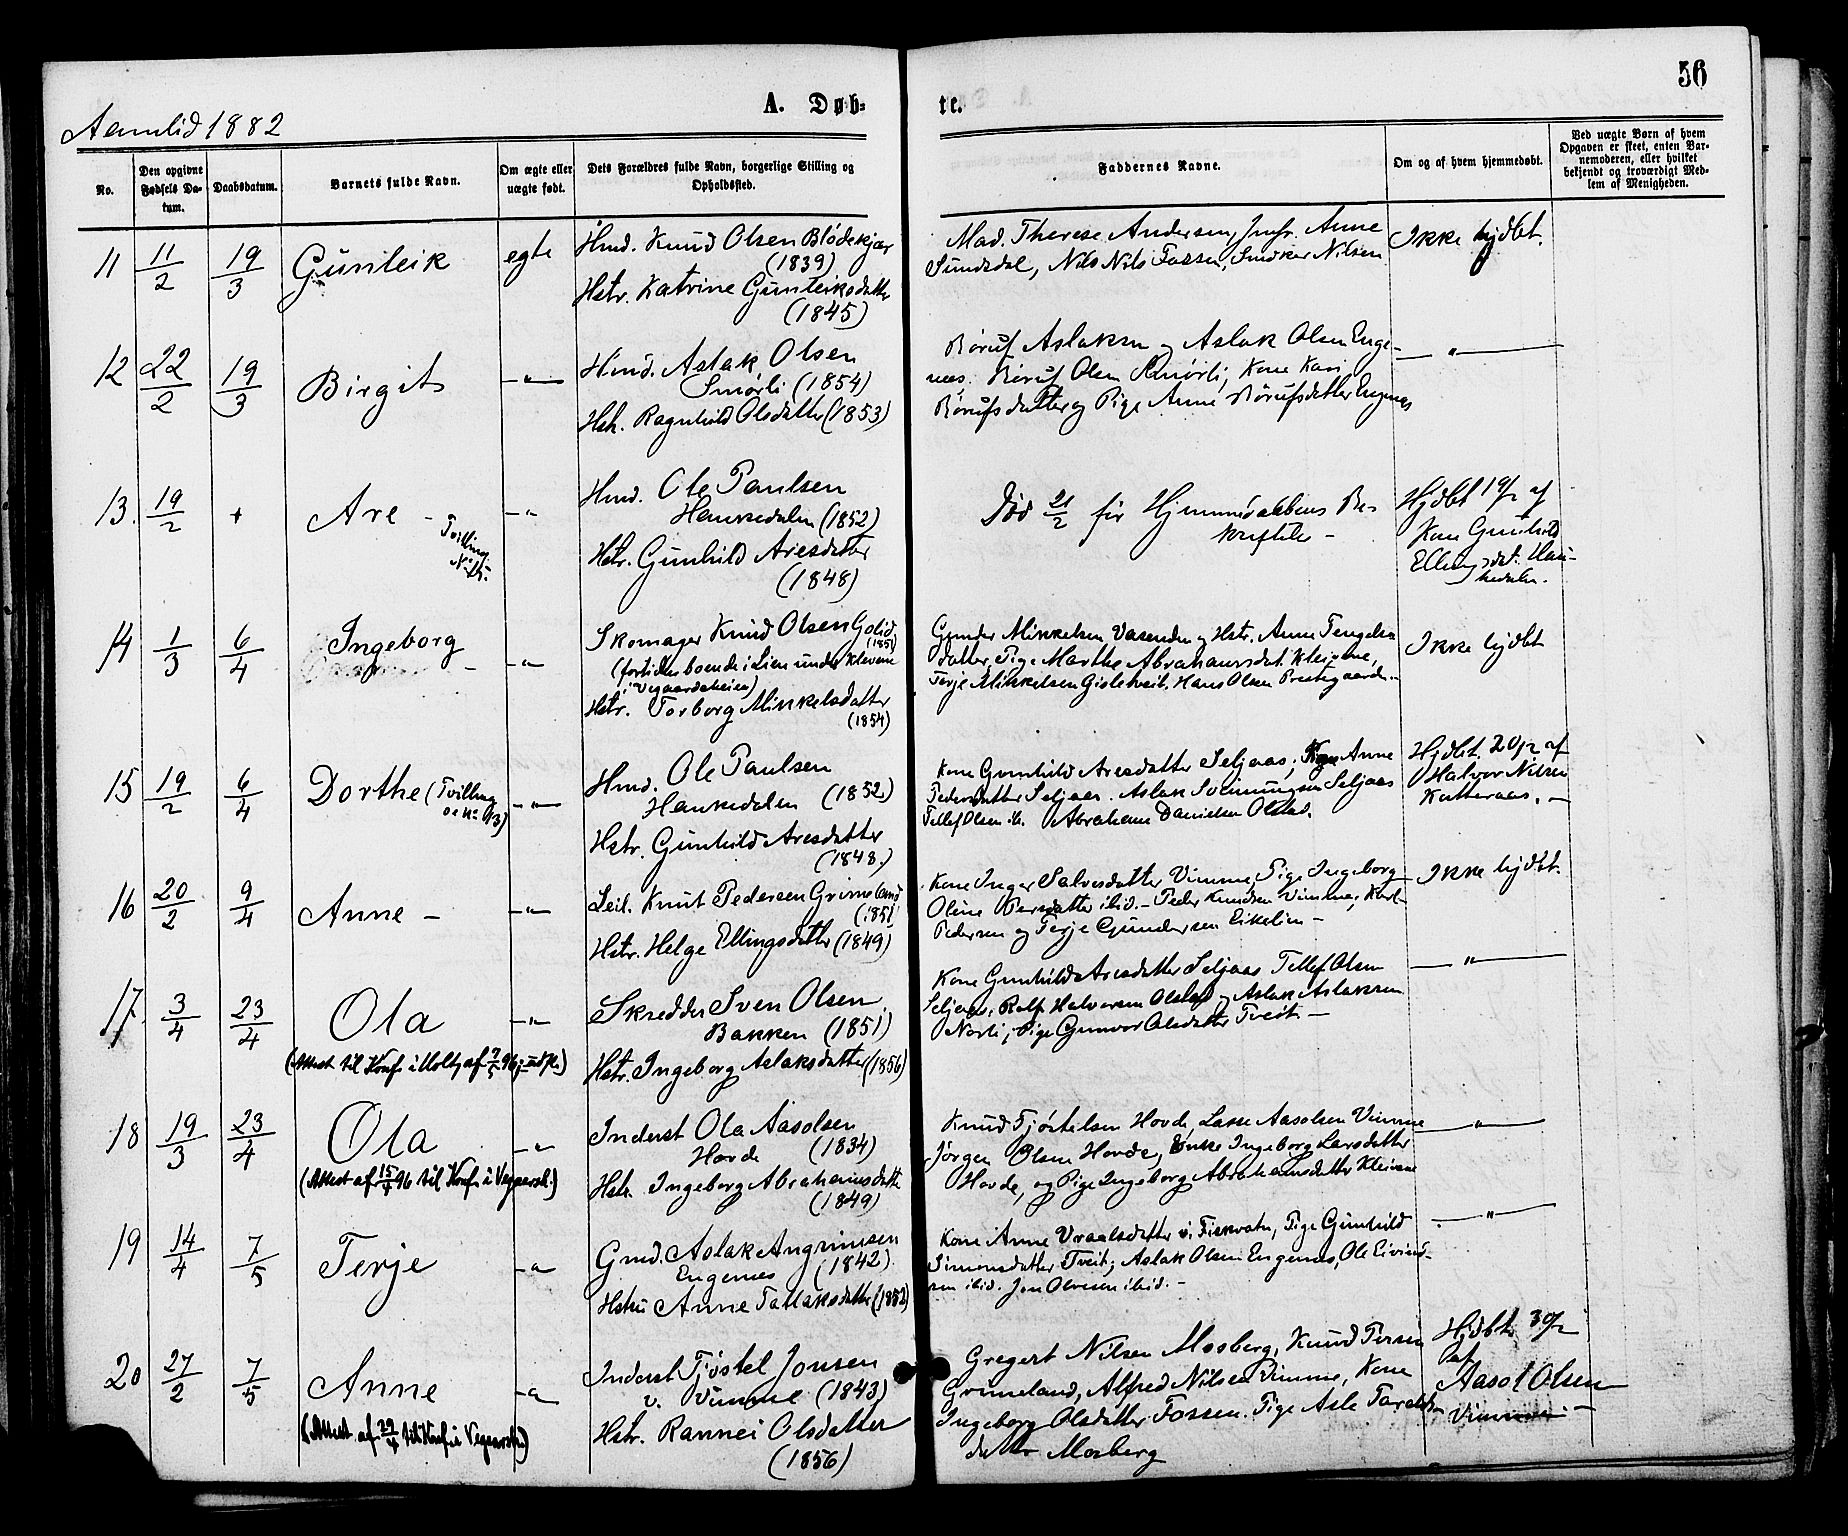 56
A. Døb-
te.
Aamlid 1882
No.
Den opgivne Fødsels Da-
tum.
Daabsdatum.
Barnets fulde Navn.
Om ægte eller
uægte født.
Dets Forældres fulde Navn, borgerlige Stilling og
Opholdssted.
Faddernes Navne.
Om og af hvem hjemmedøbt.
Ved uægte Børn af hvem
Opgaven er skeet, enten Bar-
nemoderen, eller hvilket
bekjendt og troværdigt Med-
lem af Menigheden.
11 11/2 19/3 Gunleik egte
Hmd. Knud Olsen Blödekjær
(1839)
Hstr. Katrine Gunleiksdatter
(1845)
Mad. Therese Andersen, Jmfr. Anne
Sundsdal, Nils Nils Fossen, Nilsen
Ikke hjdbt.
12 22/2 19/3 Birgit —"—
Hmd. Aslak Olsen
Smörli (1854)
Hstr. Ragnhild Olsdatter (1853)
Böruf Aslaksen og Aslak Olsen Enge-
nes. Böruf Olsen Smörli, Kone Kari
Börufsdatter og Pige Anne Börufsdatter Engenes
—"—
13. 19/2 + Are - —"—
Tvilling
Hmd. Ole Paulsen
Hanksedalen (1852)
Hstr. Gunhild Aresdatter
(1848)
Död 21/2 för Hjemmedaabens Be-
kræftelse -
Hjdbt 19/2 af
Kone Gunhild
Ellingsdat. Han-
kedalen.
14 1/3 6/4 Ingeborg - —"—
Skomager Knud Olsen Golid
(1851)
(fortiden boende i Lien under Klevene
i Vegaardsheien)
Hstr. Torborg Mikkelsdatter
(1854)
Gunder Mikkelsen Vasenden og Hstr. Anne Tengels-
datter, Pige Marthe Abrahamsdat. Kleivene,
Terje Mikkelsen Gisletveit, Hans Olsen Prestgaarden.
Ikke hjdbt
15 19/2 6/4 Dorthe (Tvilling
No 13) —"—
Hmd. Ole Paulsen
Hanksedalen (1852)
Hstr. Gunhild Aresdatter
(1848.)
Kone Gunhild Aresdatter Seljaas, Pige Anne
Pedersdatter Seljaas. Aslak Seljaas
Tellef Olsen ib. Abraham Danielsen Olstad.
Hjdbt. 20/2 af
Halvor Nilsen
Katteraas. -
16 20/2 9/4 Anne - —"—
Leil. Knut Pedersen Grimeland
(1851)
Hstr. Helge Ellingsdatter (1849)
Kone Inger Salvesdatter Vimme, Pige Ingeborg
Oline Persdatter ibid. - Peder Knudsen Vimme, Karl
Pedersen og Terje Gundersen Eikelien -
Ikke hjdbt.
17. 3/4 23/4 Ola —"—
(Attest til Konf. i Holt af 7/5 96)
Skrædder Sven Olsen
Bakken (1851)
Hstr. Ingeborg Aslaksdatter (1856)
Kone Gunhild Aresdatter Seljaas Tellef Olsen
Seljaas, Rolf Halvorsen Olstad og Aslak Aslaksen
Norli, Pige Gunvor Olsdatter Tveit. -
—"—
18 19/3 23/4 Ola —"—
(Attest af 15/4 96 til Konf. i Vegaarsh.)
Inderst Ola Aasolsen
Hovde (1834)
Hstr. Ingeborg Abrahamsdatter
(1849)
Knud Tjöstelsen Hovde, Lasse Aasolsen Vimme
Jörgen Olsen Hovde, Enke Ingeborg Larsdatter
Hovde, og Pige Ingeborg Abrahamsdatter Kleivene
—"—
19 14/4 7/5 Terje —"—
Gmd. Aslak Angrimsen
Engenes (1842)
Hstr. Anne Tallaksdatter (1852)
Kone Anne Vraalsdatter v. Fiskvatn, Pige Gunhild
Simensdatter Tveit, Aslak Olsen Engenes, Ole Eivind-
sen ibid. Jon Olsen ibid. -
—"—
20 27/2 7/5 Anne —"—
(Attest af 29/4 til Konf. i Vegaarsh.)
Inderst Tjöstel Jonsen
v. Vimme (1843)
Hstr. Rannei Olsdatter
(1856)
Gregert Nilsen Mosberg, Knud Tersen
Grimeland, Alfred Nilsen Vimme, Kone
Ingeborg Olsdatter Fossen. Pige Asle Taralds-
datter Mosberg
Hjdbt
af
Aasol Olsen
Vimme -